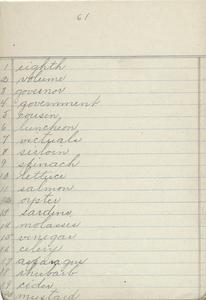 61
1 eighth
2 volume
3 governor
4 government
5 cousin
6 luncheon
7 victuals
8 sirloin
9 spinach
10 lettuce
11 salmon
12 oyster
13 sardine
14 molasses
15 vinegar
16 celery
17 asparagus
18 rhubarb
19 cider
mustard